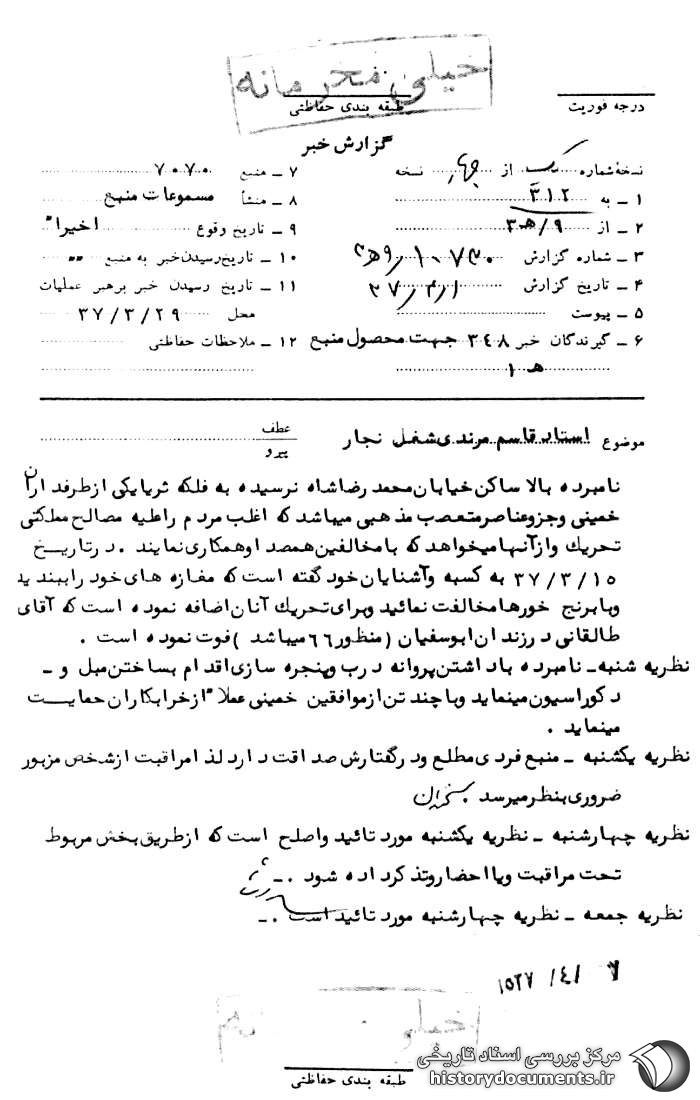 خیلی محرمانه
طبقه بندی حفاظتی
درجه فوریت
گزارش خبر
نسخه شماره یک از چهار نسخه
۱ ـ به ۳۱۲
۲ ـ از ۹/هـ۳
۳ ـ شماره گزارش ۱۰۷۳۰/۹هـ۳
۴ ـ تاریخ گزارش ۳۷/۴/۱
۵ ـ پیوست
۶ ـ گیرندگان خبر ۳۴۸ جهت محصول منبع
هـ ۱
۷ ـ منبع ۷۰۷۰
۸ ـ منشأ مسموعات منبع
۹ ـ تاریخ وقوع اخیراً
۱۰ ـ تاریخ رسیدن خبر به منبع ״
۱۱ ـ تاریخ رسیدن خبر برهبر عملیات
محل ۳۷/۳/۲۹
۱۲ ـ ملاحظات حفاظتی
موضوع استاد قاسم مرندی شغل نجار
عطف
پیرو
نامبرده بالا ساکن خیابان محمد رضا شاه نرسیده به فلکه ثریا یکی از طرفداران
خمینی و جزو عناصر متعصب مذهبی میباشد که اغلب مردم را علیه مصالح مملکتی
تحریك و از آنها میخواهد که با مخالفین همصدا و همکاری نمایند . در تاریخ
۳۷/۳/۱۵ به کسبه و آشنایان خود گفته است که مغازه های خود را ببندید
و با برنج خورها مخالفت نمائید و برای تحریك آنان اضافه نموده است که آقای
طالقانی در زندان ابوسفیان (منظور ۶۶ میباشد ) فوت نموده است .
نظریه شنبه ـ نامبرده با داشتن پروانه درب و پنجره سازی اقدام بساختن مبل و ـ
دکوراسیون مینماید و با چند تن از موافقین خمینی عملاً از خرابکاران حمایت
مینماید .
نظریه یکشنبه ـ منبع فردی مطلع و در گفتارش صداقت دارد لذا مراقبت از شخص مزبور
ضروری بنظر میرسد .
نظریه چهارشنبه ـ نظریه یکشنبه مورد تائید و اصلح است که از طریق بخش مربوط
تحت مراقبت و یا احضار و تذکر داده شود . ـ
نظریه جمعه ـ نظریه چهارشنبه مورد تائید است . ـ
خیلی
طبقه بندی حفاظتی
مرکز بررسی اسناد تاریخی
historydocuments.ir